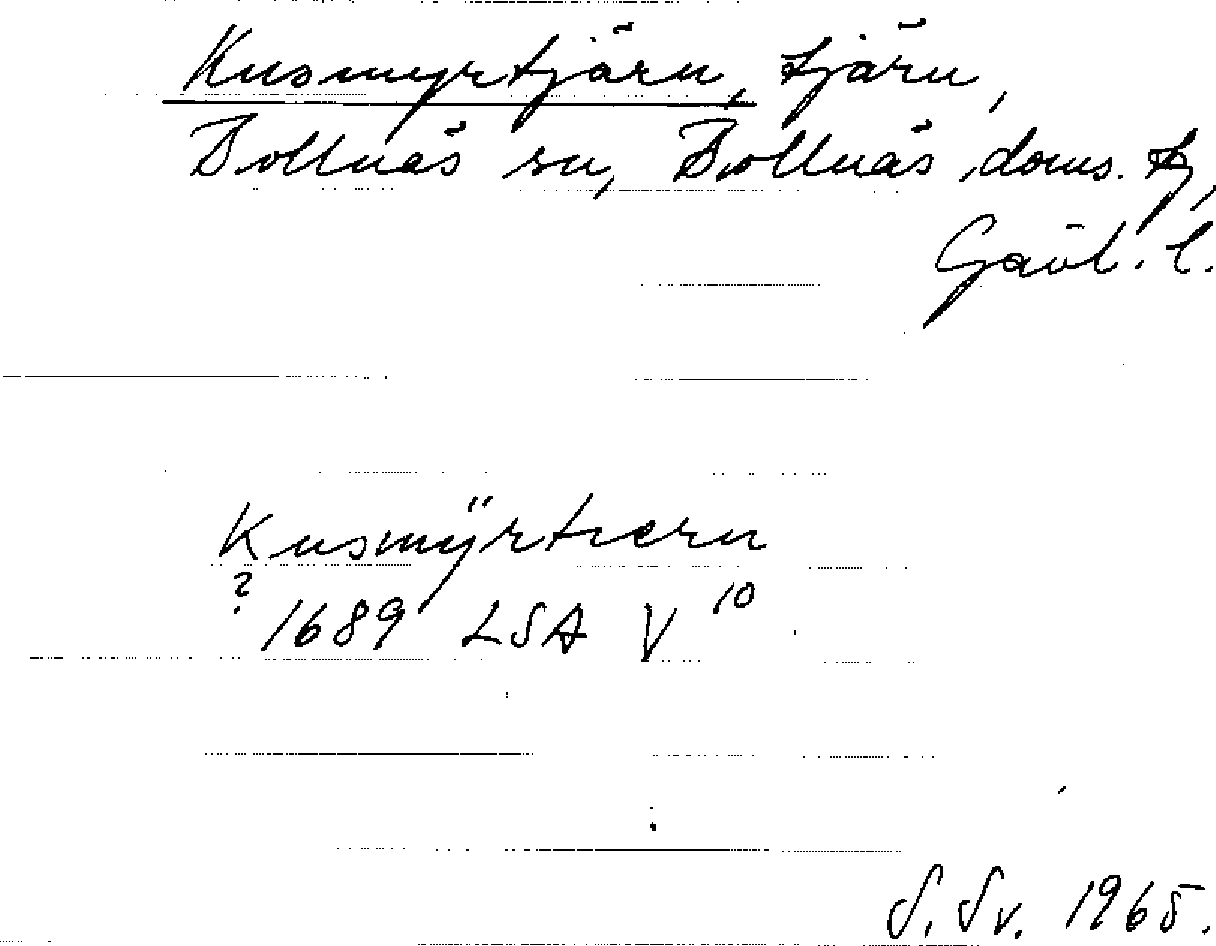 Kusmyrtjärn, tjärn,
Bollnäs sn, Bollnäs doms. tj,
Gävl. l.
Kusmÿrtiern
? 1689 LSA V 10
S. Sv. 1965.